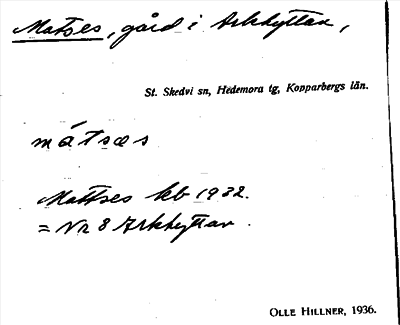 Matses, gård i Arkhyttan,
St. Skedvi sn, Hedemora tg, Kopparbergs län.
mátsæs
Mattses kb 1932.
= Nr 8 Arkhyttan.
OLLE HILLNER, 1936.